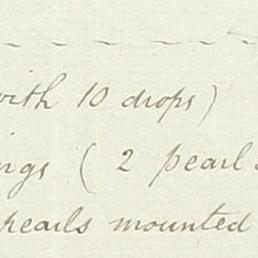 with 10 drops)
ings ( 2 pearl
pearls mounted